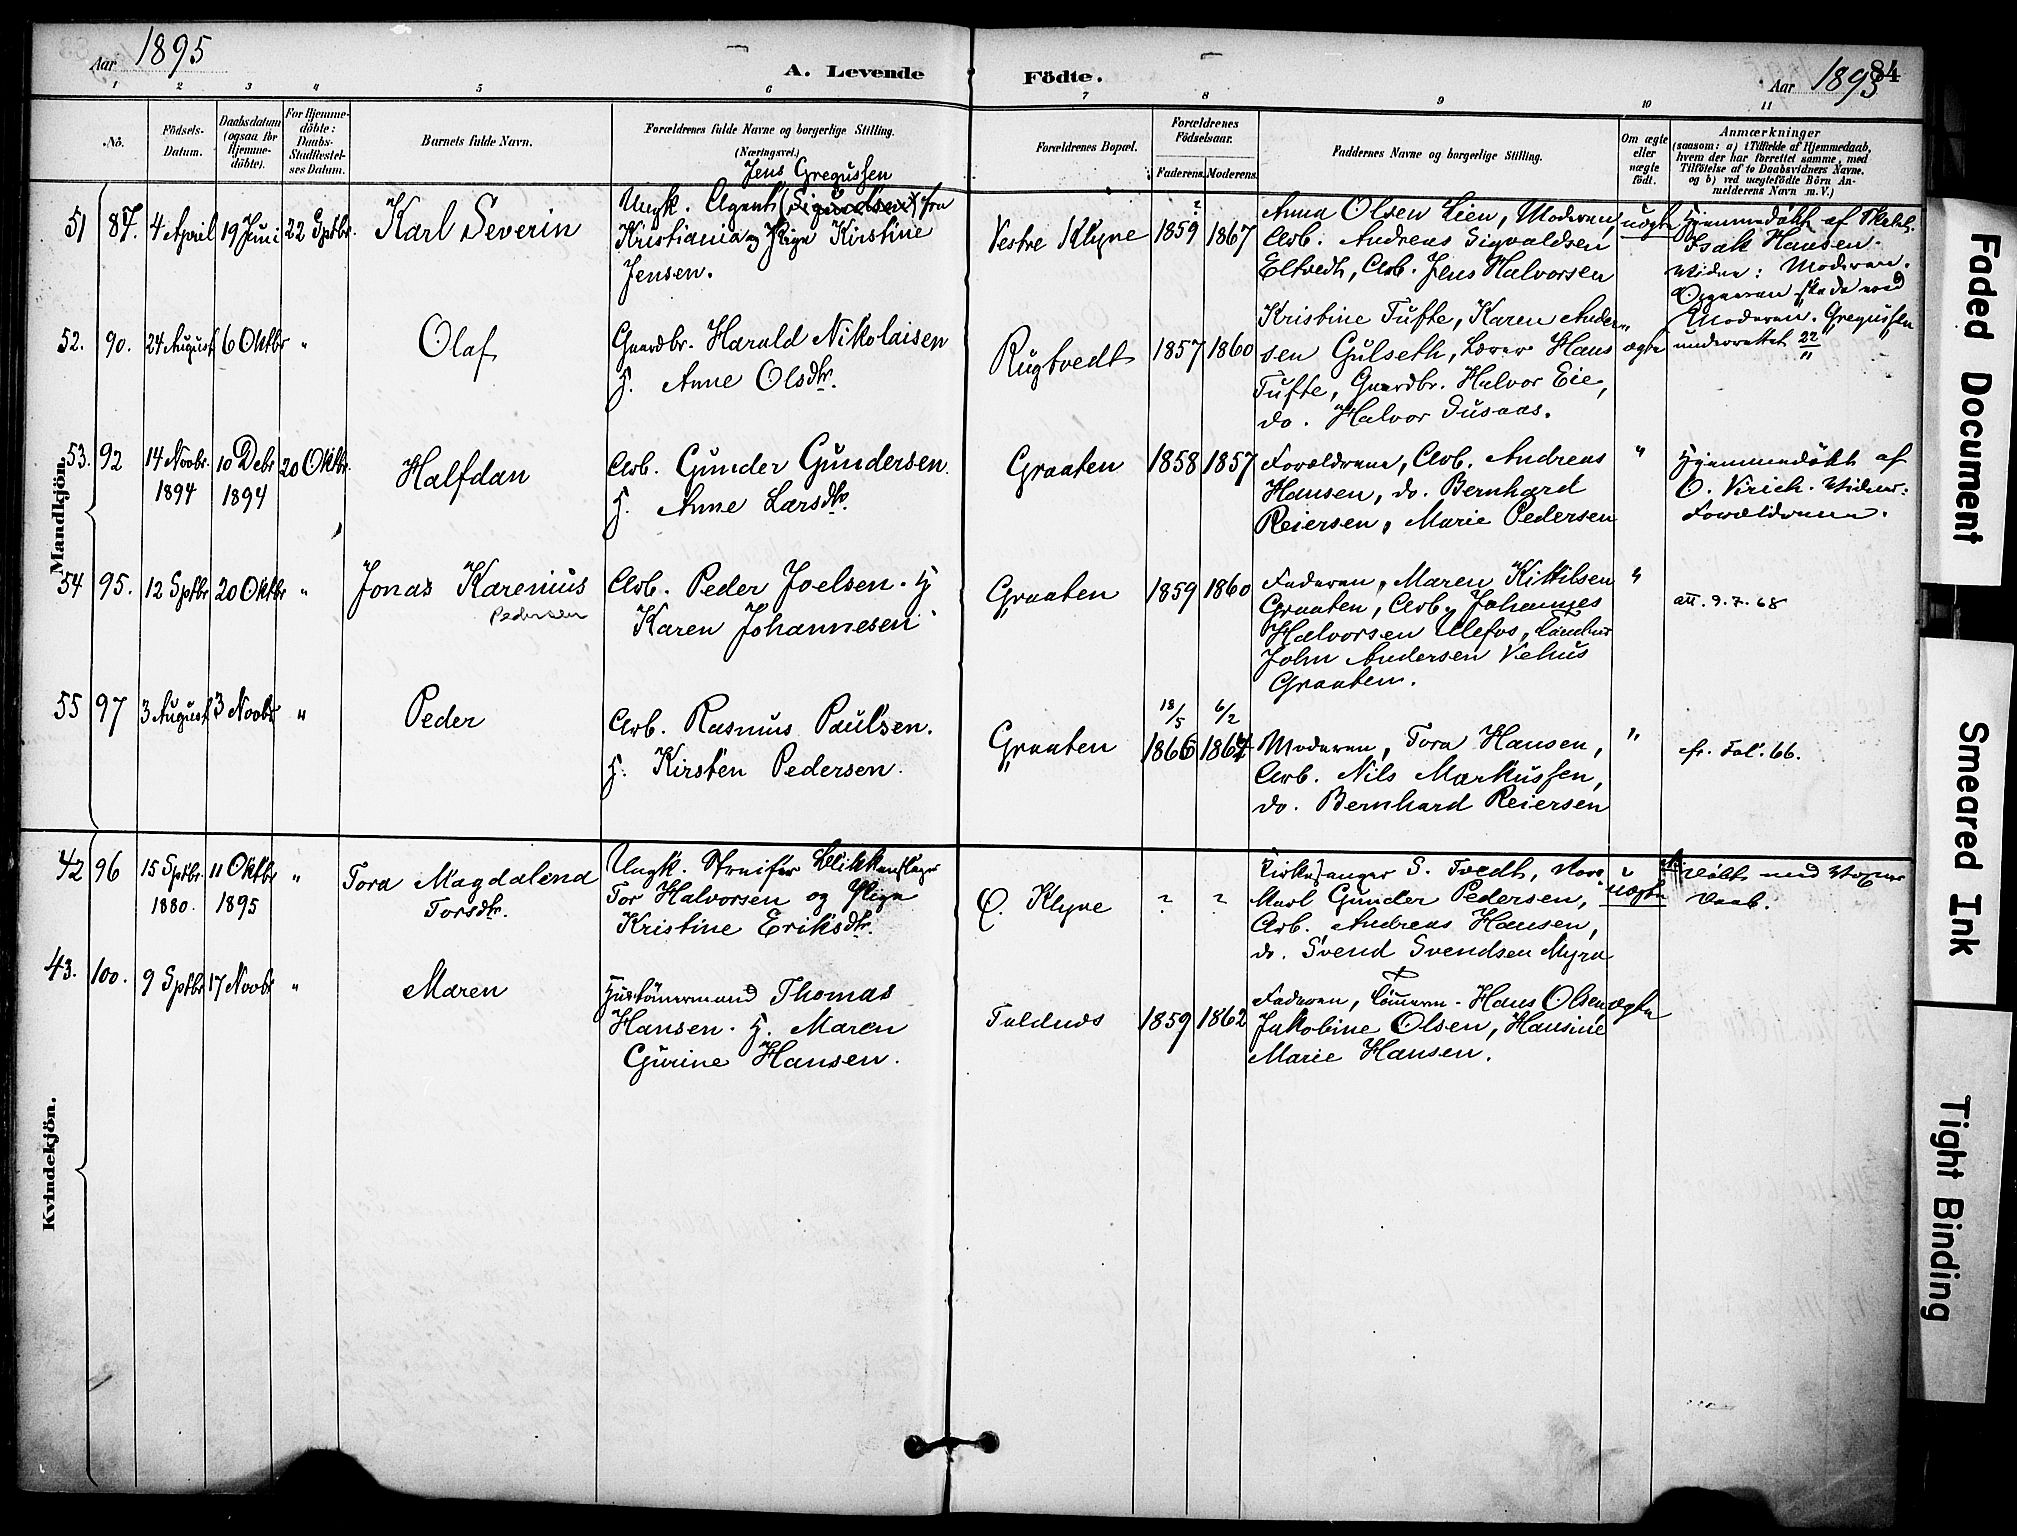 Aar 1895
A. Levende Födte.
Aar 1895
84
1 2 3 4 5 6 7 8 9 10 11
No.
Födsels-
Datum.
Daabsdatum
(ogsaa for
Hjemme-
döbte).
For Hjemme-
döbte:
Daabs-
Stadfæstel-
ses Datum.
Barnets fulde Navn.
Forældrenes fulde Navne og borgerlige Stilling.
(Næringsvei.)
Forældrenes Bopæl.
Forældrenes
Födselsaar.
Faderens. Moderens.
Faddernes Navne og borgerlige Stilling.
Om ægte
eller
uægte
födt.
Anmærkninger
(saasom: a) i Tilfælde af Hjemmedaab,
hvem der har forrettet samme, med
Tilföielse af to Daabsvidners Navne.
og b) ved uægtefödte Börn An-
melderens Navn m. V.)
Mandkjön.
51 87. 4 April 19 Juni 22 Sptbr.
Karl Severin
Jens Gregussen
Ungk. Agent fra
Kristiania og Pige Kirstine
Jensen.
Vestre Klyve
? 1859 1867
Anna Olsen Lien, Moderen,
Arb. Andreas Sigvaldsen
Eltvedt, Arb. Jens Halvorsen
uægte
Hjemmedöbt af
Isak Hansen.
Moderen.
Moderen. Gregussen
underrettet 22/11
52. 90. 24 August 6 Oktbr "
Olaf
Gaardbr. Harald Nikolaisen
H. Anne Olsdtr.
Rugtvedt
1857 1860
Kristine Tufte, Karen Ander-
sen Gulseth, Lærer Hans
Tufte, Gaardbr. Halvor Eie,
do. Halvor Dusaas.
ægte
53. 92 14 Novbr. 1894 10 Debr 1894 20 Oktbr.
Halfdan
Arb. Gunder Gundersen
H. Anne Larsdtr.
Graaten
1858 1857
Forældrene, Arb. Andreas
Hansen, do. Bernhard
Reiersen, Marie Pedersen
"
Hjemmedöbt af
Forældrene.
54 95. 12 Sptbr 20 Oktbr "
Jonas Karenius
Pedersen
Arb. Peder Joelsen. H
Karen Johannesen
Graaten
1859 1860
Faderen, Maren Kittilsen
Graaten, Arb. Johannes
Halvorsen Ulefos,
John Andersen Vehus
Graaten.
"
att. 9.7.68
55 97 3 August 3 Novbr "
Peder
Arb. Rasmus Paulsen.
H. Kirsten Pedersen.
Graaten
18/5 1866 6/2 1867
Moderen, Tora Hansen,
Arb. Nils Markussen,
do. Bernhard Reiersen
"
cfr. Fol. 66.
Kvindekjön.
42 96 15 Sptbr. 1880. 11 Oktbr 1895 "
Tora Magdalena
Torsdtr.
Ungk. Streifer Blikkenslager
Tor Halvorsen og Pige
Kristine Eriksdtr.
Ö. Klyve
? ?
Kirkesanger S. Tvedt,
Gunder Pedersen,
Arb. Andreas Hansen,
do. Svend Svendsen Myra
uægte
döbt med Voxen
Daab.
43. 100. 9 Sptbr 17 Novbr "
Maren
Thomas
Hansen. H. Maren
Gurine Hansen.
1859 1862
Faderen, Tömerm. Hans Olsen
Jakobine Olsen, Hansine
Marie Hansen.
ægte
Faded Document
Smeared Ink
Tight Binding